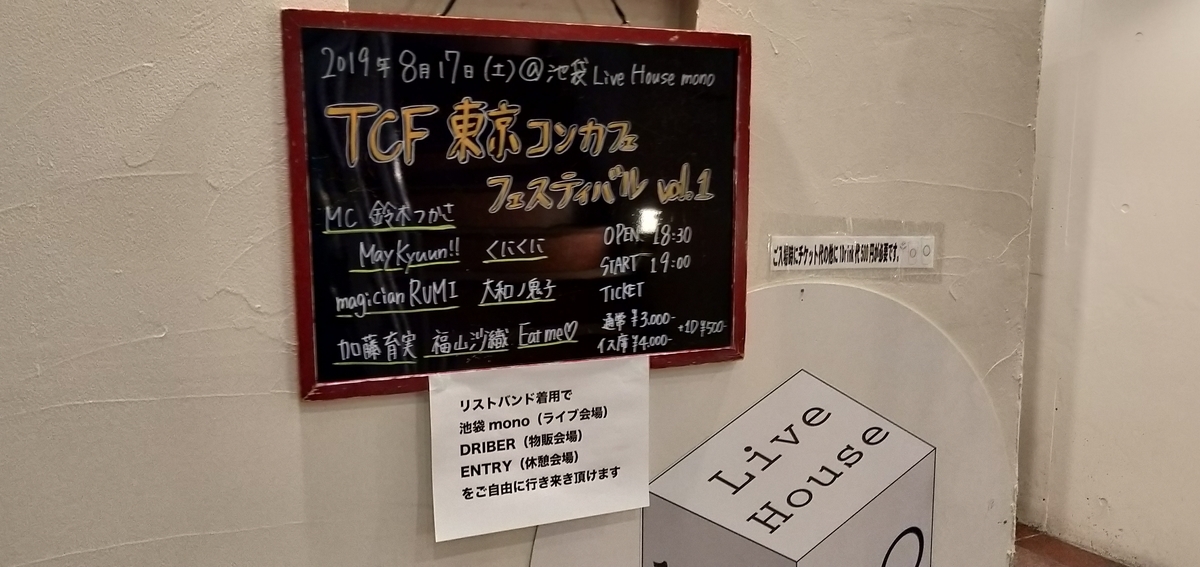 2019年8月17日(土)@池袋Live House mono
TCF 東京コンカフェ
フェスティバル vol.1
MC 鈴木つかさ
MayKyuun!! くにくに
magician RUMI 大和ノ鬼子
加藤育実 福山沙織 Eat me♡
OPEN 18:30
START 19:00
TICKET
通常 ¥3.000-
イス席 ¥4.000-
+1D ¥500-
ご入場時にチケット代の他に1Drink代500円が必要です。
リストバンド着用で
池袋 mono(ライブ会場)
DRIBER(物販会場)
ENTRY(休憩会場)
をご自由に行き来き頂けます
Live
House